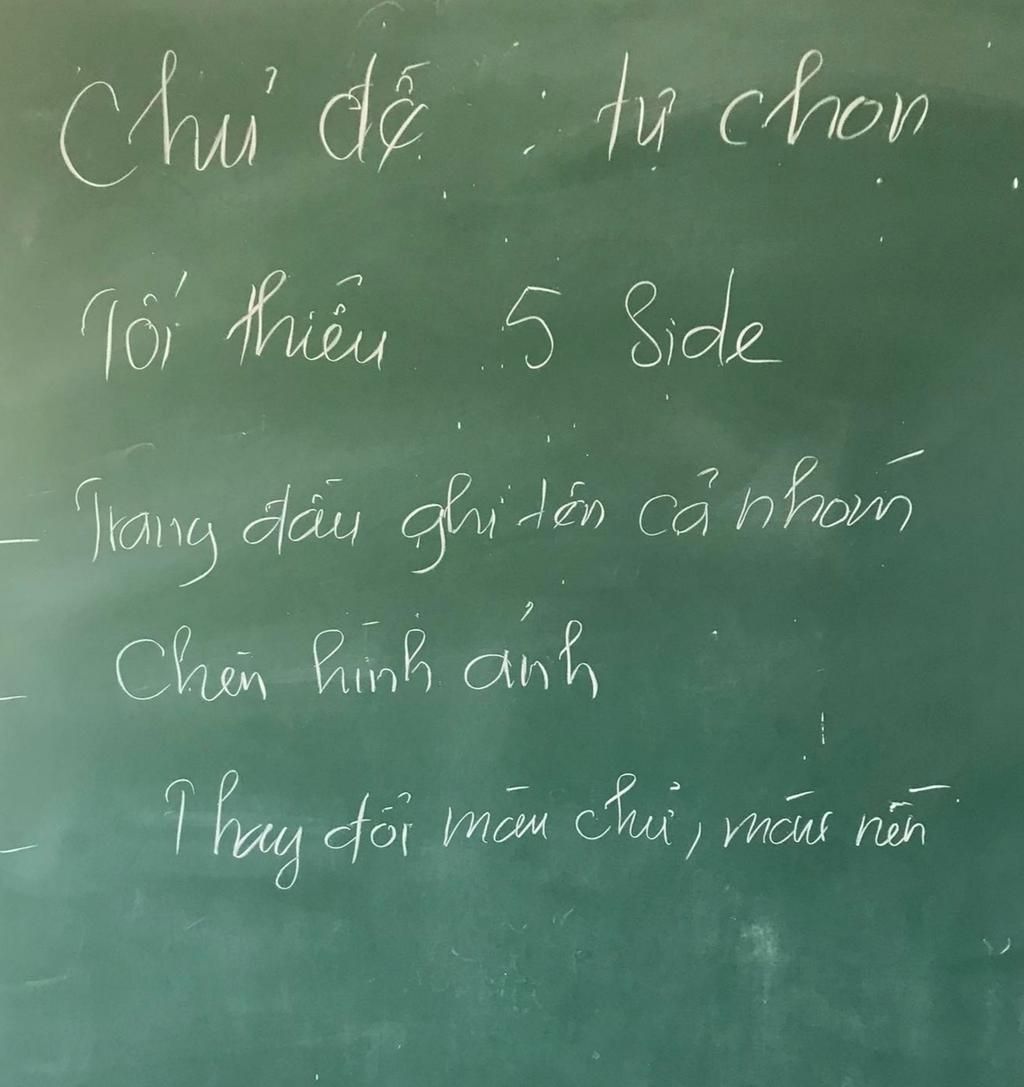 Chủ đề : tự chọn
Tối thiểu 5 Side
- Trang đầu ghi tên cả nhóm
- Chèn hình ảnh
- Thay đổi màu chữ, màu nền